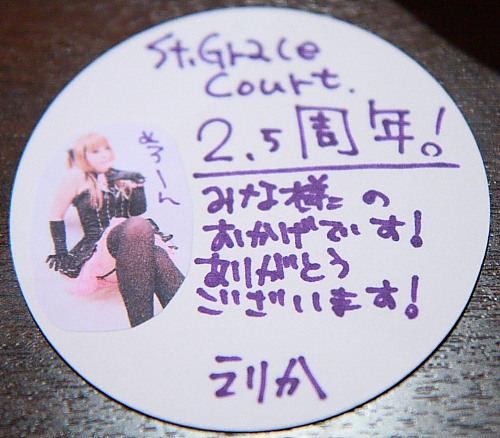 St. Grace
Court.
2.5周年!
みな様の
おかげでいす!
ありがとう
ございます!
えりか